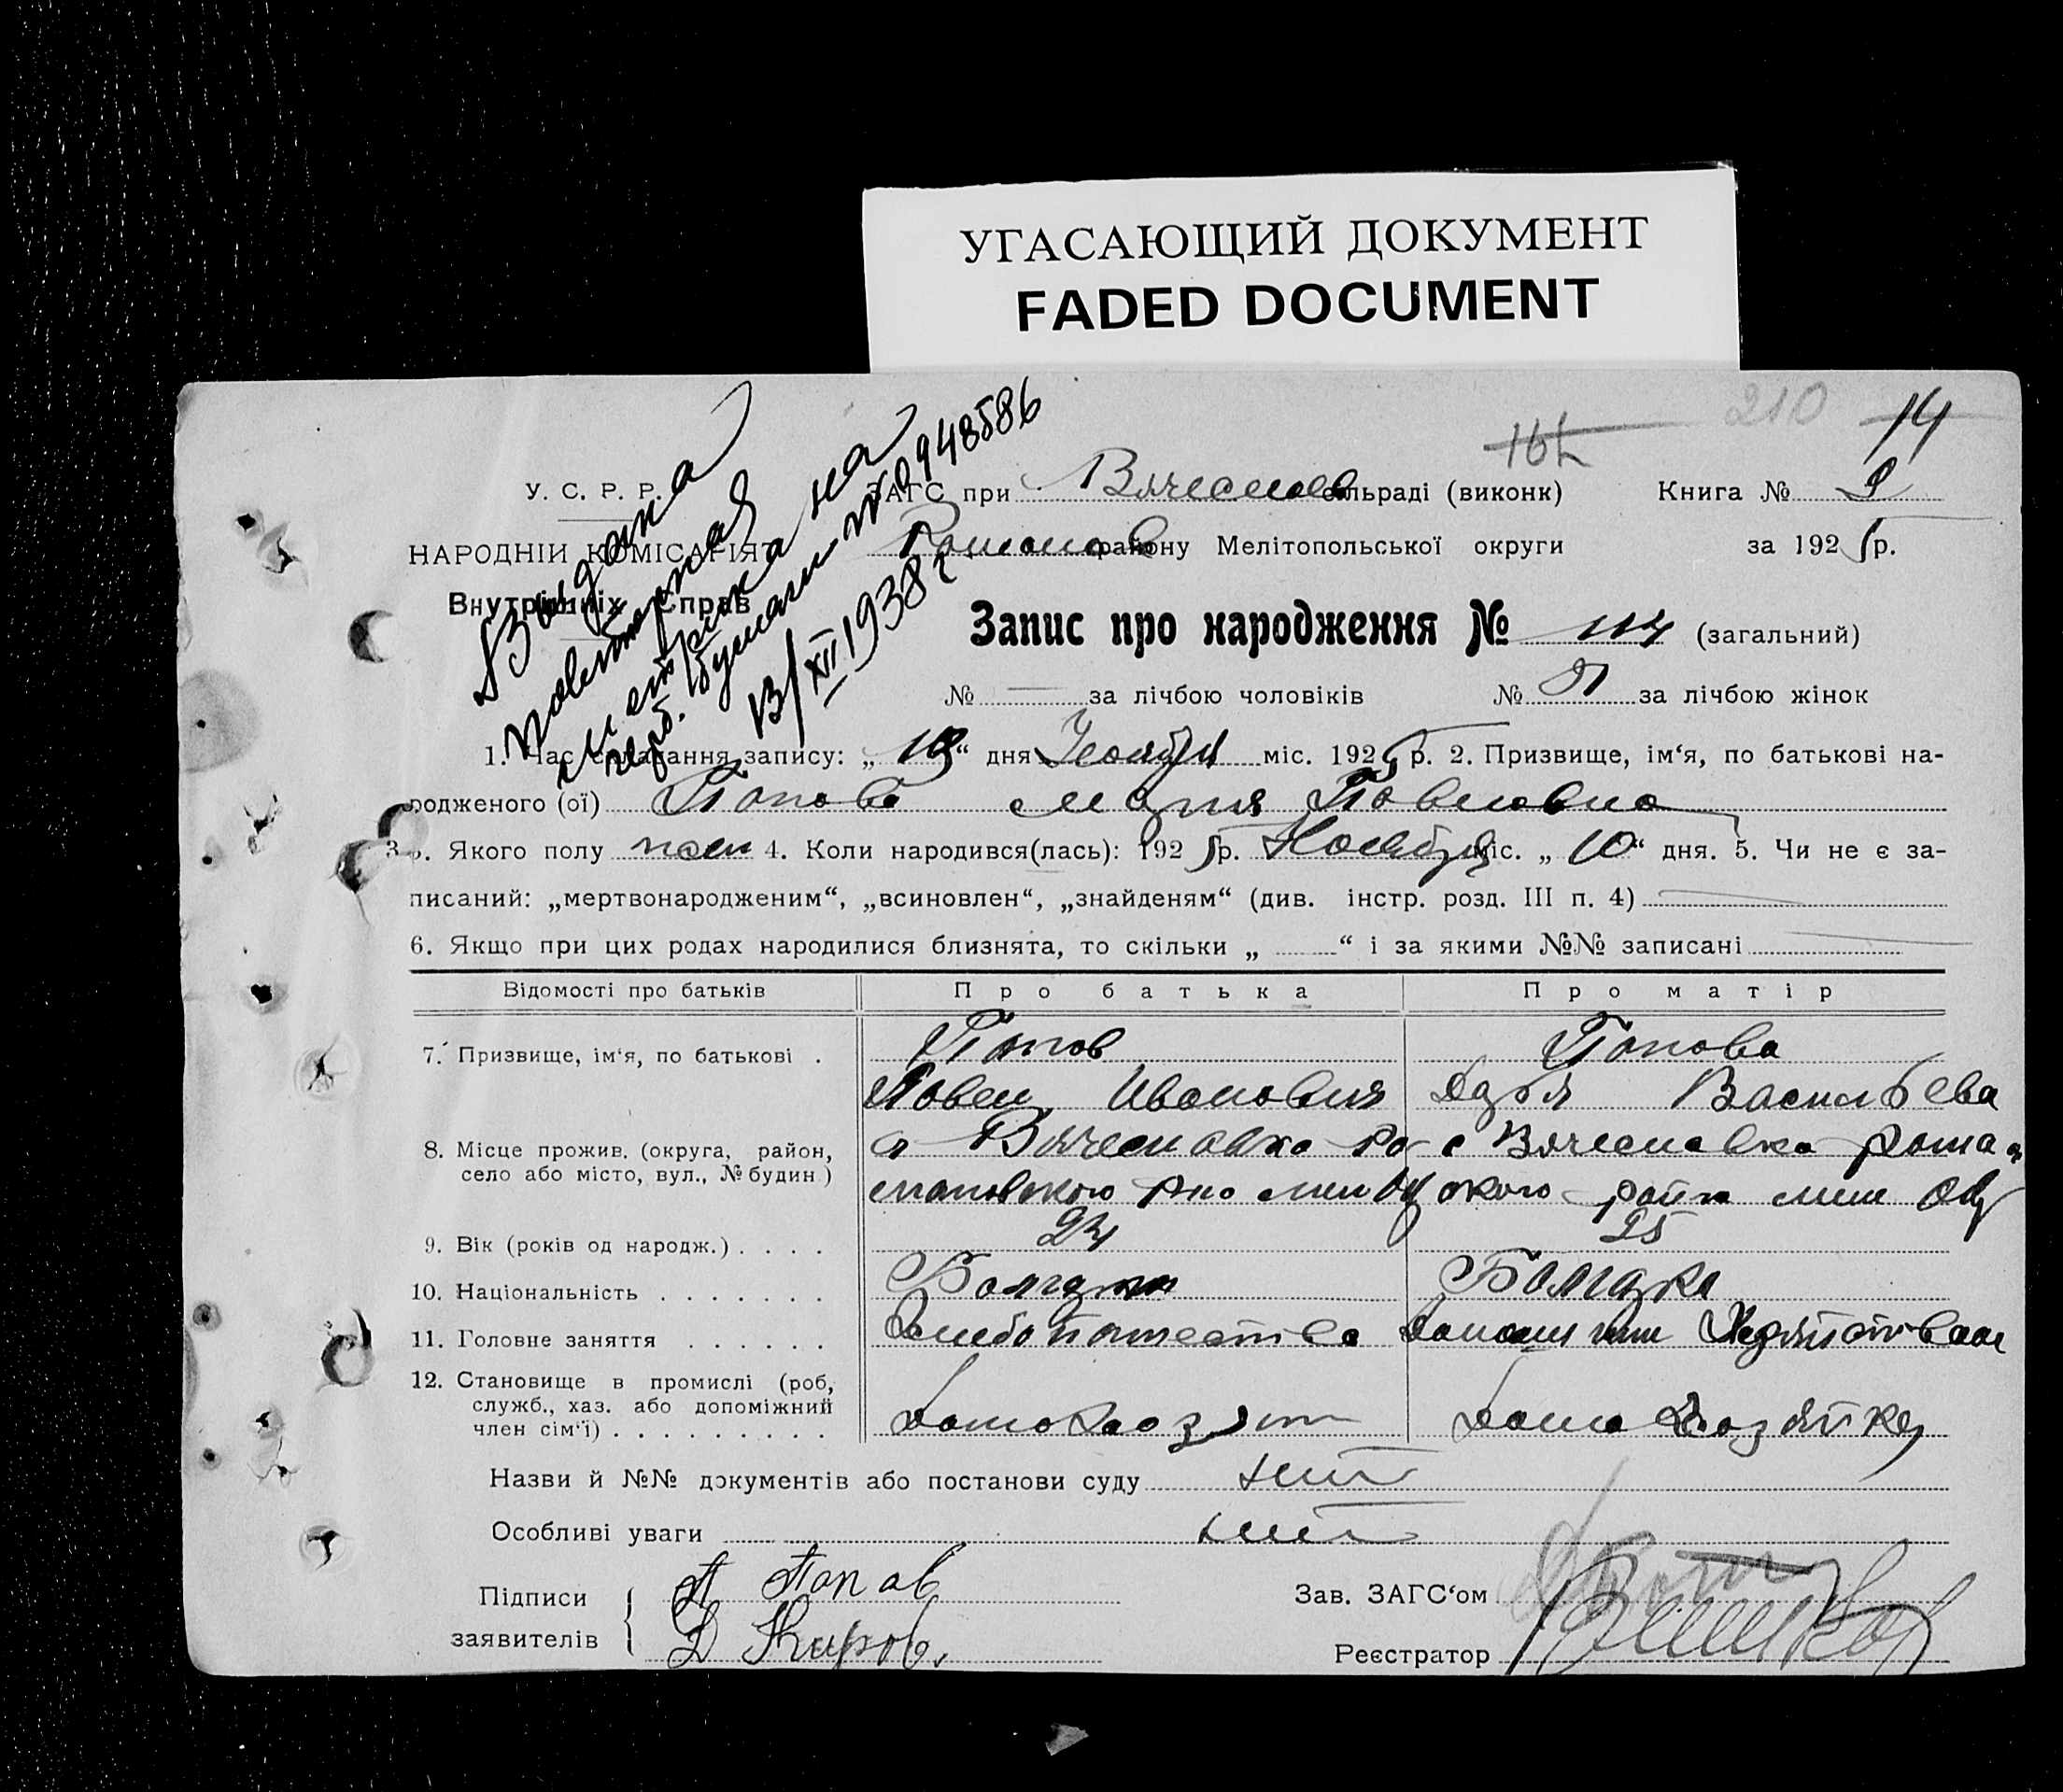 УГАСАЮЩИЙ ДОКУМЕНТ
FADED DOCUMENT
210 14
У. С. Р. Р.
ЗАГС при Вячеслов сільраді (виконк) Книга № 9
НАРОДНІЙ КОМІСАРІЯТ
Внутрішніх Справ
району Мелітопольської округи за 1925 р.
Выдана
повторная
метрика на
герб. бумаги № 0948586
13/XII 1938 г
Запис про народження № (загальний)
№ — за лічбою чоловіків № за лічбою жінок
1. Час складання запису: „ “ дня Ноября міс. 1925 р. 2. Призвище, ім‘я, по батькові на-
родженого (ої) Попова Мария Павловна
3. Якого полу жен 4. Коли народився(лась): 1925 р. Ноября міс. „ 10 “ дня. 5. Чи не є за-
писаний: „мертвонародженим“, „всиновлен“, „знайденям“ (див. інстр. розд. III п. 4)
6. Якщо при цих родах народилися близнята, то скільки „ “ і за якими №№ записані
Відомості про батьків Про батька Про матір
7. Призвище, ім‘я, по батькові . Попов Попова
Павел Иванович Дарья Васильева
8. Місце прожив. (округа, район, село або місто, вул., № будин) с Вячеславка Ро с Вячеславка Рома
мановского мел окр ского район мел окр
9. Вік (років од народж.) . . . . 24 25
10. Національність . . . . . . . Болгарин Болгарка
11. Головне заняття . . . . . . Хлебопашество
12. Становище в промислі (роб, служб., хаз. або допоміжний член сім‘ї) . . . . . . . . . Домохозяин Домохозяйка
Назви й №№ документів або постанови суду нет
Особливі уваги нет
Підписи заявителів П Попов
Д Киров.
Зав. ЗАГС‘ом
Реєстратор